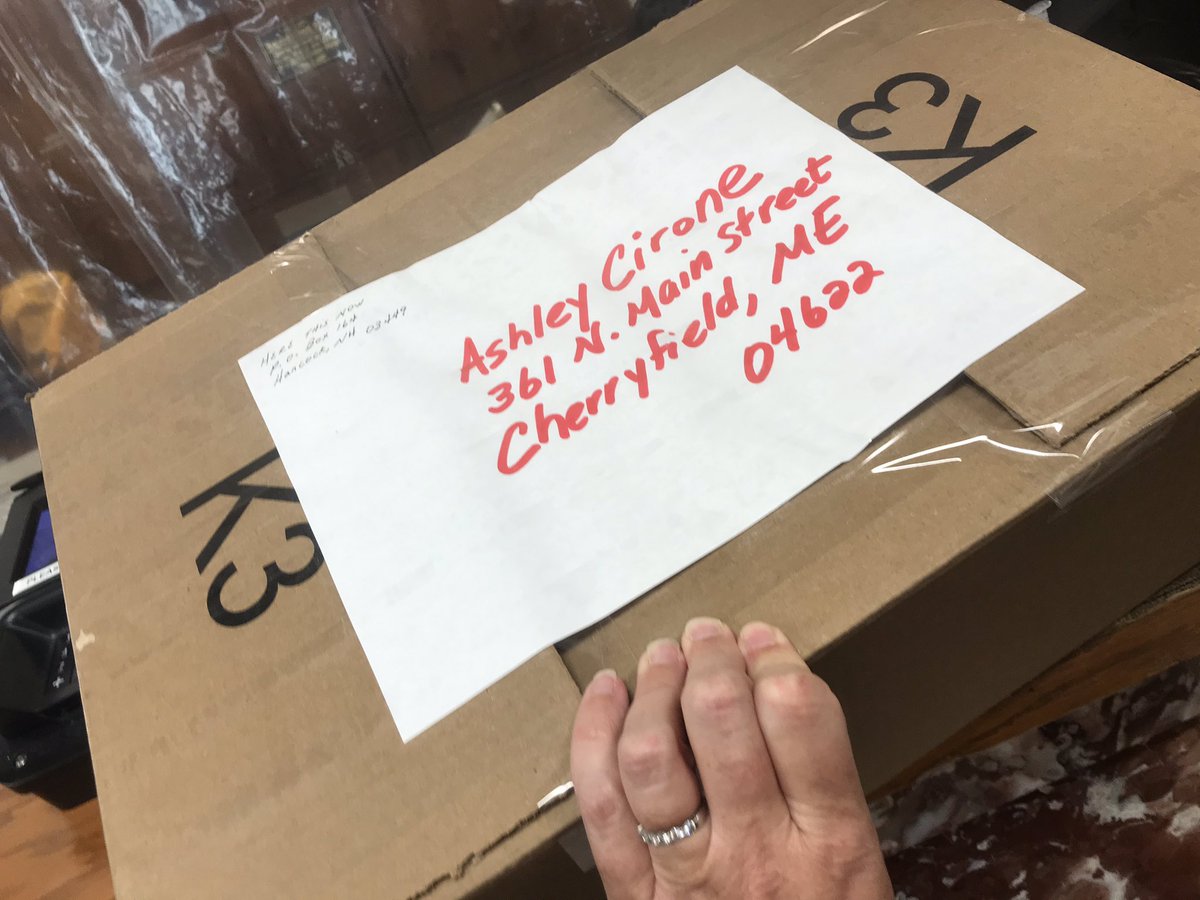 HERE THIS NOW
P.O. Box 164
Hancock, NH 03449
Ashley Cirone
361 N. Main Street
Cherryfield, ME
04622
K3
K3
PLEAS